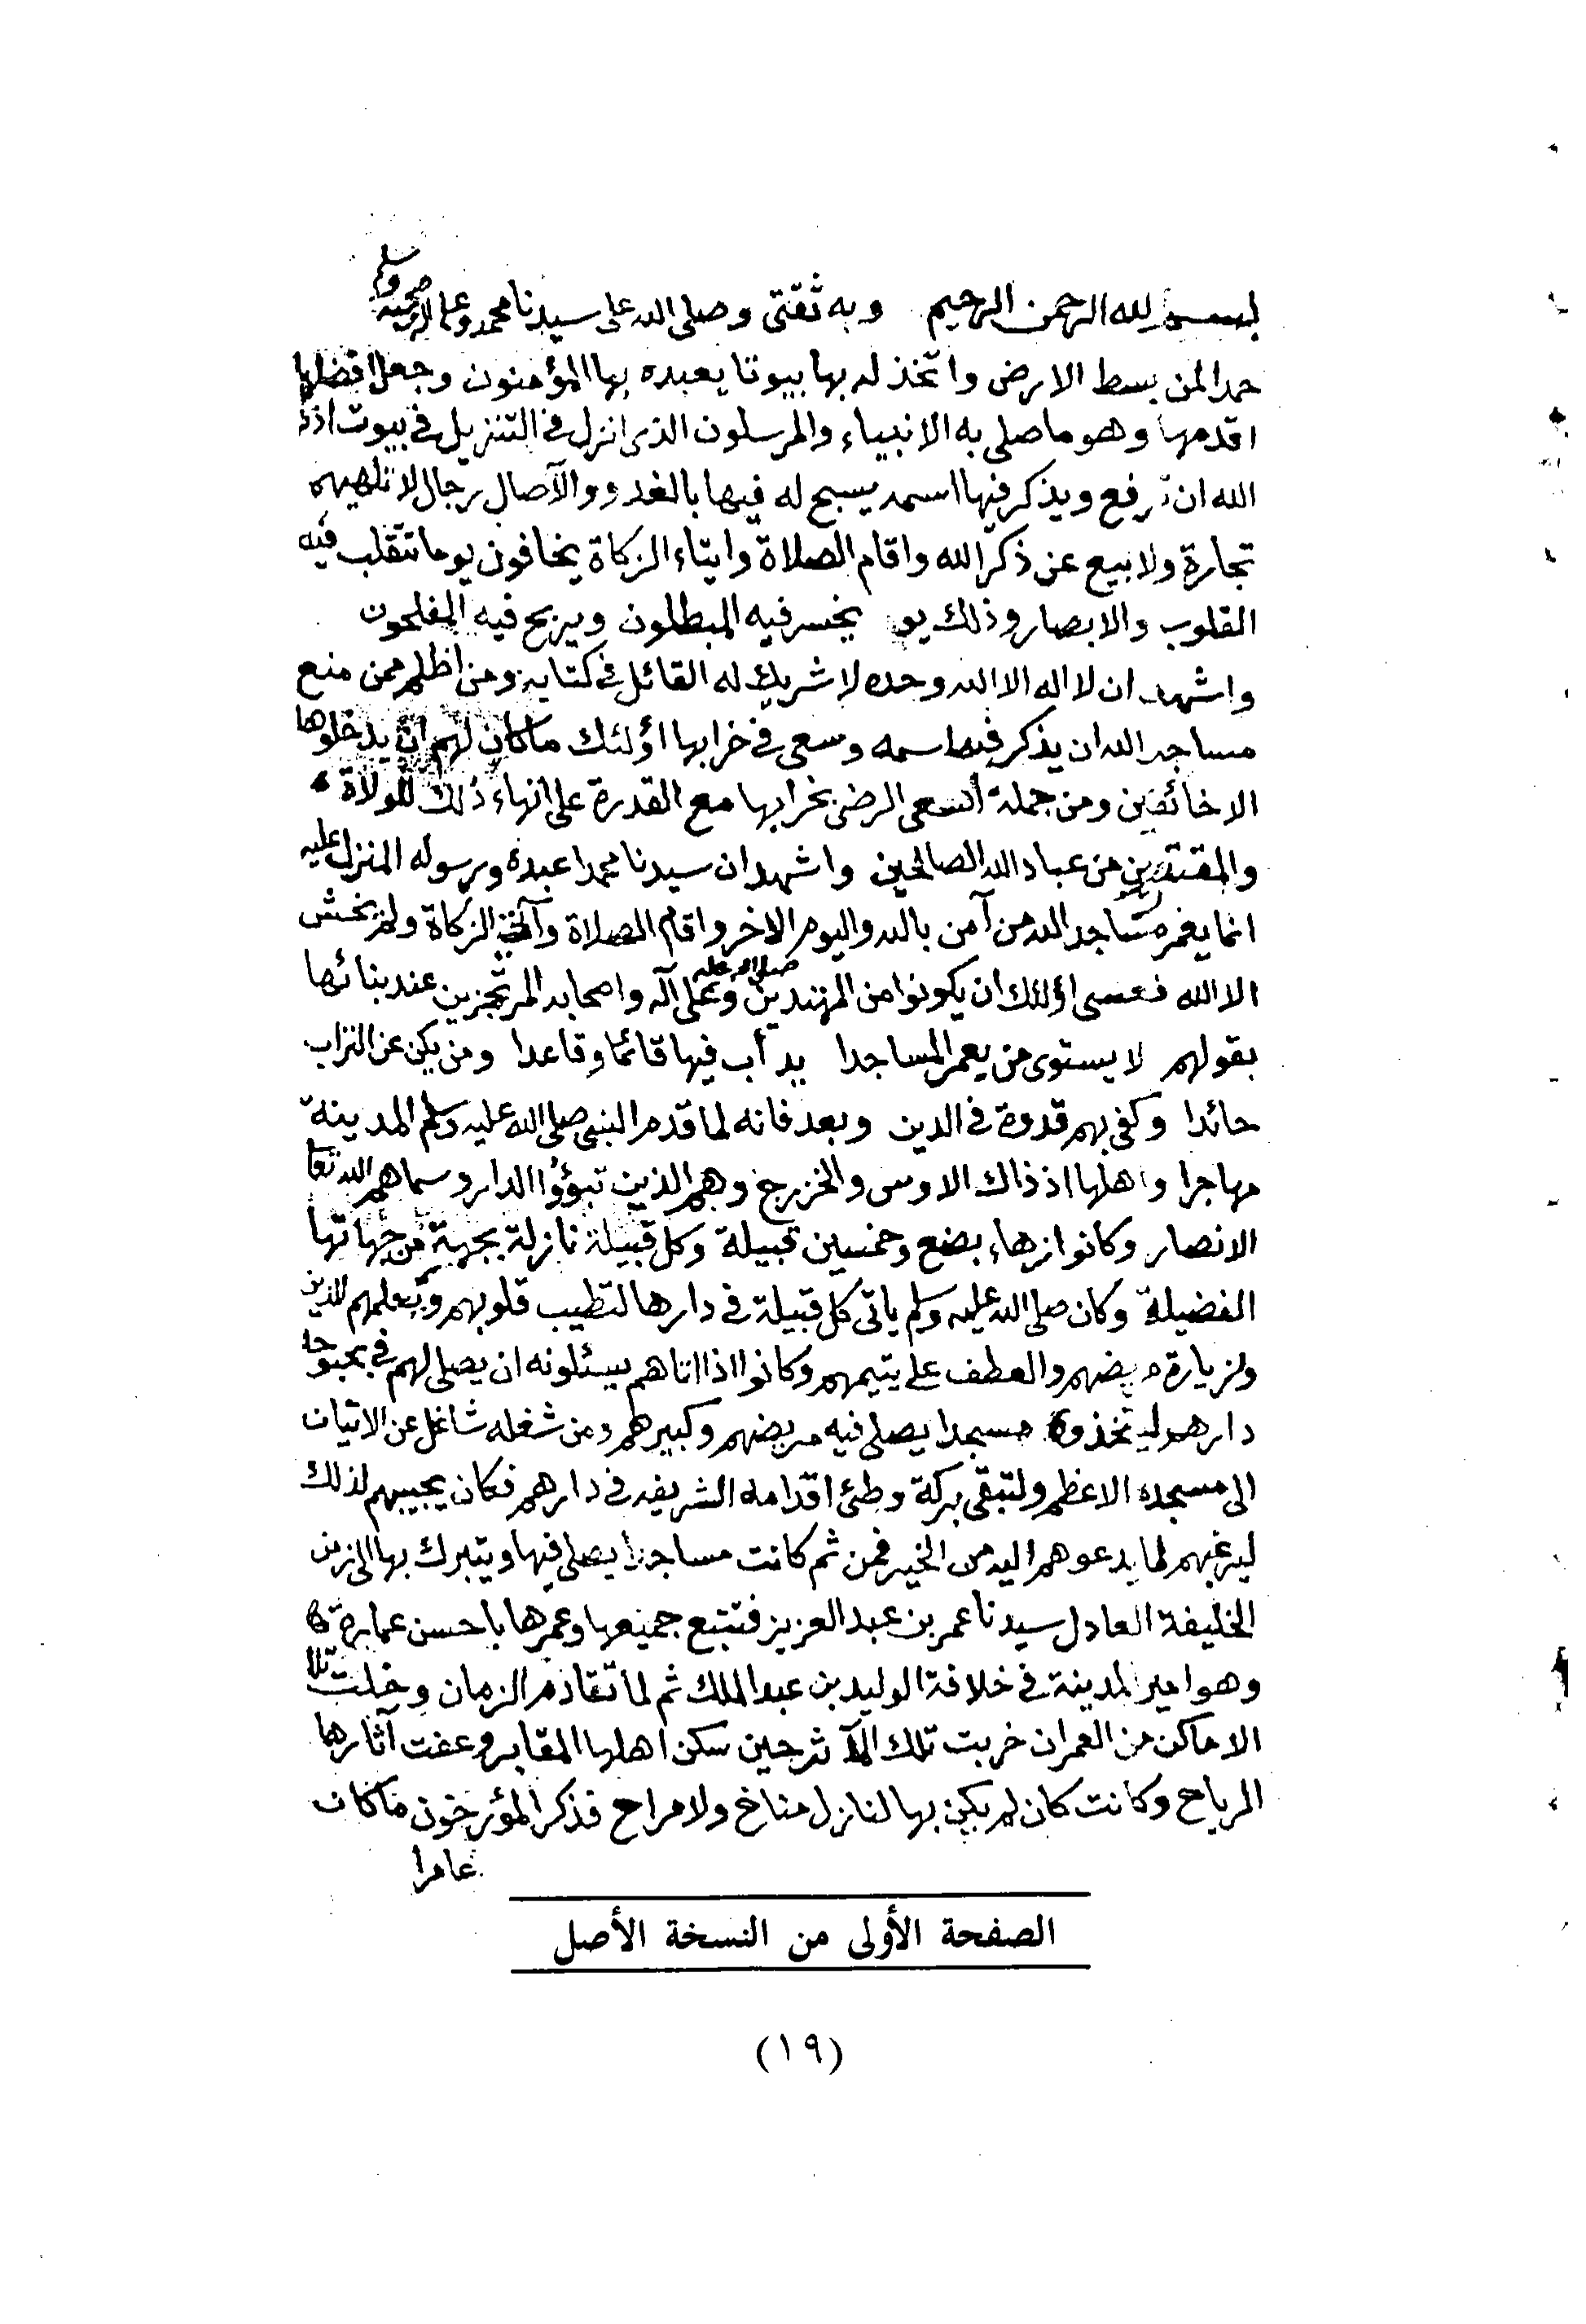 بسم الله الرحمن الرحيم وبه ثقتى وصلى الله على سيدنا محمد وعلى اله وصحبه وسلم
حمدا لمن بسط الارض واتخذ له بها بيوتا يعبده بها المؤمنون وجعل افضلها
اقدمها وهو ما صلى به الانبياء والمرسلون الذى انزل فى التنزيل فى بيوت اذن
الله ان ترفع ويذكر فيها اسمه يسبح له فيها بالغدو والآصال رجال لا تلهيهم
تجارة ولا بيع عن ذكر الله واقام الصلاة وايتاء الزكاة يخافون يوما تتقلب فيه
القلوب والابصار وذلك يو يخسر فيه المبطلون ويربح فيه المفلحون
واشهد ان لا اله الا الله وحده لا شريك له القائل فى كتابه ومن اظلم ممن منع
مساجد الله ان يذكر فيها اسمه وسعى فى خرابها اؤلئك ما كان لهم ان يدخلوها
الا خائفين ومن جملة السعى الرضى بخرابها مع القدرة على انهاء ذلك للولاة
والمقتدين من عباد الله الصالحين واشهد ان سيدنا محمدا عبده ورسوله المنزل عليه
انما يعمر مساجد الله من آمن بالله واليوم الاخر واقام الصلاة وآتى الزكاة ولم يخش
الا الله فعسى اؤلئك ان يكونوا من المهتدين صلى الله عليه وعلى آله واصحابه المرتجزين عند بنائها
بقولهم لا يستوى من يعمر المساجدا يدأب فيها قائما وقاعدا ومن يكن عن التراب
حائدا وكفى بهم قدوة فى الدين وبعد فانه لما قدم النبى صلى الله عليه وسلم المدينة
مهاجرا واهلها اذ ذاك الاوس والخزرج وهم الذين تبوؤا الدار وسماهم الله تعا
الانصار وكانوا زهاء بضع وخمسين قبيلة وكل قبيلة نازلة بجهة من جهاتها
الفضيلة وكان صلى الله عليه وسلم ياتى كل قبيلة فى دارها لتطيب قلوبهم وتعلمهم للدين
ولزيارة مريضهم والعطف على يتيمهم وكانوا اذا اتاهم يسئلونه ان يصلى لهم فى بحبوحة
دارهم ليتخذوه مسجدا يصلى فيه مريضهم وكبيرهم ومن شغله شاغل عن الاتيان
الى مسجده الاعظم ولتبقى بركة وطئ اقدامه الشريفه فى دارهم فكان يجيبهم لذلك
ليرغبهم لما يدعوهم اليه من الخير فمن ثم كانت مساجدا يصلى فيها ويتبرك بها الى زمن
الخليفة العادل سيدنا عمر بن عبد العزيز فتتبع جميعها وعمرها باحسن عمارة
وهو امير المدينة فى خلافة الوليد بن عبد الملك ثم لما تقادم الزمان وخلت تلك
الاماكن من العمران خربت تلك المآثر حين سكن اهلها المقابر وعفت آثارها
الرياح وكانت كان لم يكن بها لنازل مناخ ولا مراح فذكر المؤرخون ما كان
عامرا
الصفحة الأولى من النسخة الأصل
(١٩)